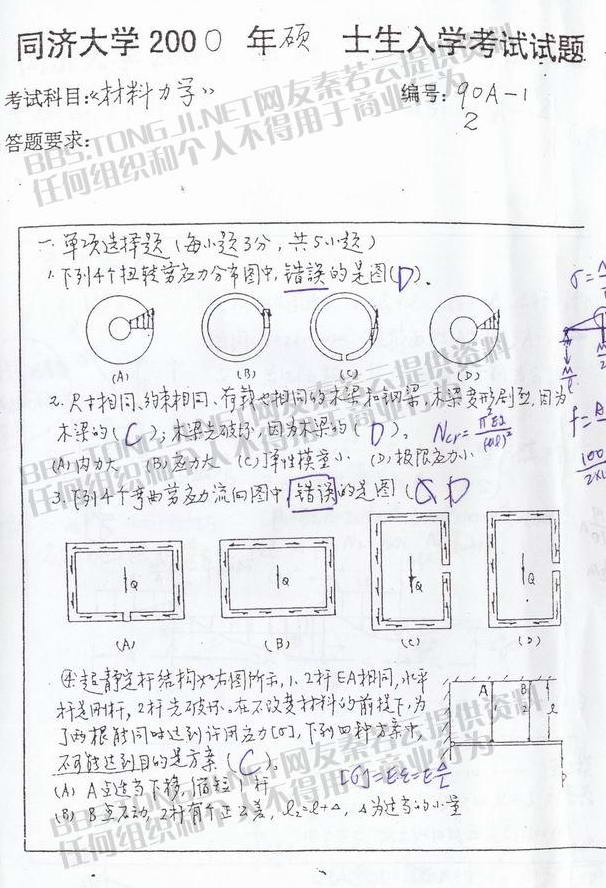 同济大学2000年硕 士生入学考试试题
考试科目:《材料力学》 编号:90A-1
2
答题要求:
BBS.TONGJI.NET网友秦若云提供资料
任何组织和个人不得用于商业行为
一.单项选择题(每小题3分,共5小题)
1.下列4个扭转剪应力分布图中,错误的是图(D)。
(A) (B) (C) (D)
2.尺寸相同、约束相同、荷载也相同的木梁和钢梁,木梁变形剧烈,因为
木梁的(C);木梁先破坏,因为木梁的(D)。
(A)内力大 (B)应力大 (C)弹性模量小 (D)极限应力小
3.下列4个弯曲剪应力流向图中错误的是图(
BBS.TONGJI.NET网友秦若云提供资料
任何组织和个人不得用于商业行为
Q Q Q Q
(A) (B) (C) (D)
④超静定杆结构如右图所示,1、2杆EA相同,水平
杆是刚杆,2杆先破坏。在不改变材料的前提下,为
了两根能同时达到许用应力[σ],下列四种方案中,
不可能达到目的是方案(C)。
A B
1 2 l
P
(A) A点适当下移,缩短1杆
(B) B点不动,2杆有个正公差,l₂=l+Δ,Δ为适当的小量
BBS.TONGJI.NET网友秦若云提供资料
任何组织和个人不得用于商业行为